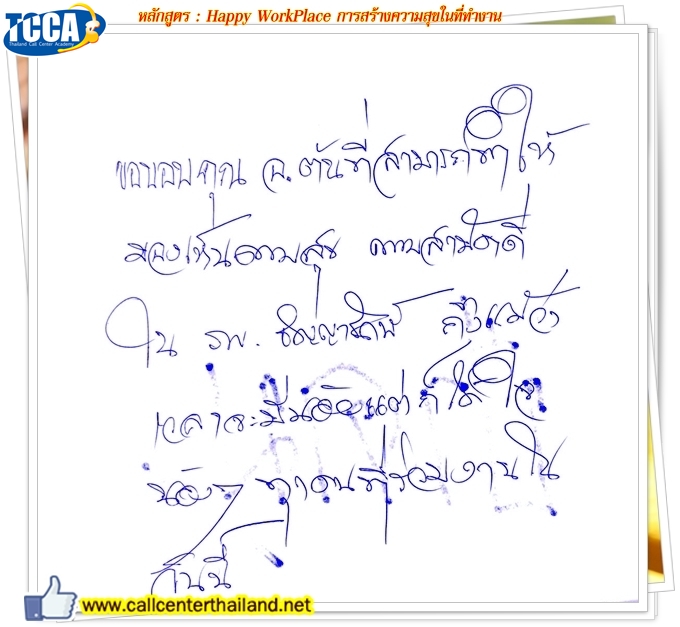 หลักสูตร : Happy WorkPlace การสร้างความสุขในที่ทำงาน
TCCA
Thailand Call Center Academy
ขอขอบคุณ อ.ต้นที่สามารถทำให้
มองเห็นความสุข ความสามัคคี
ใน รพ. ธัญญารักษ์ ถึงแม้ว่า
เวลาจะมีน้อยแต่ก็ได้ใจ
น้องๆ ทุกคนที่ร่วมงานใน
วันนี้
www.callcenterthailand.net